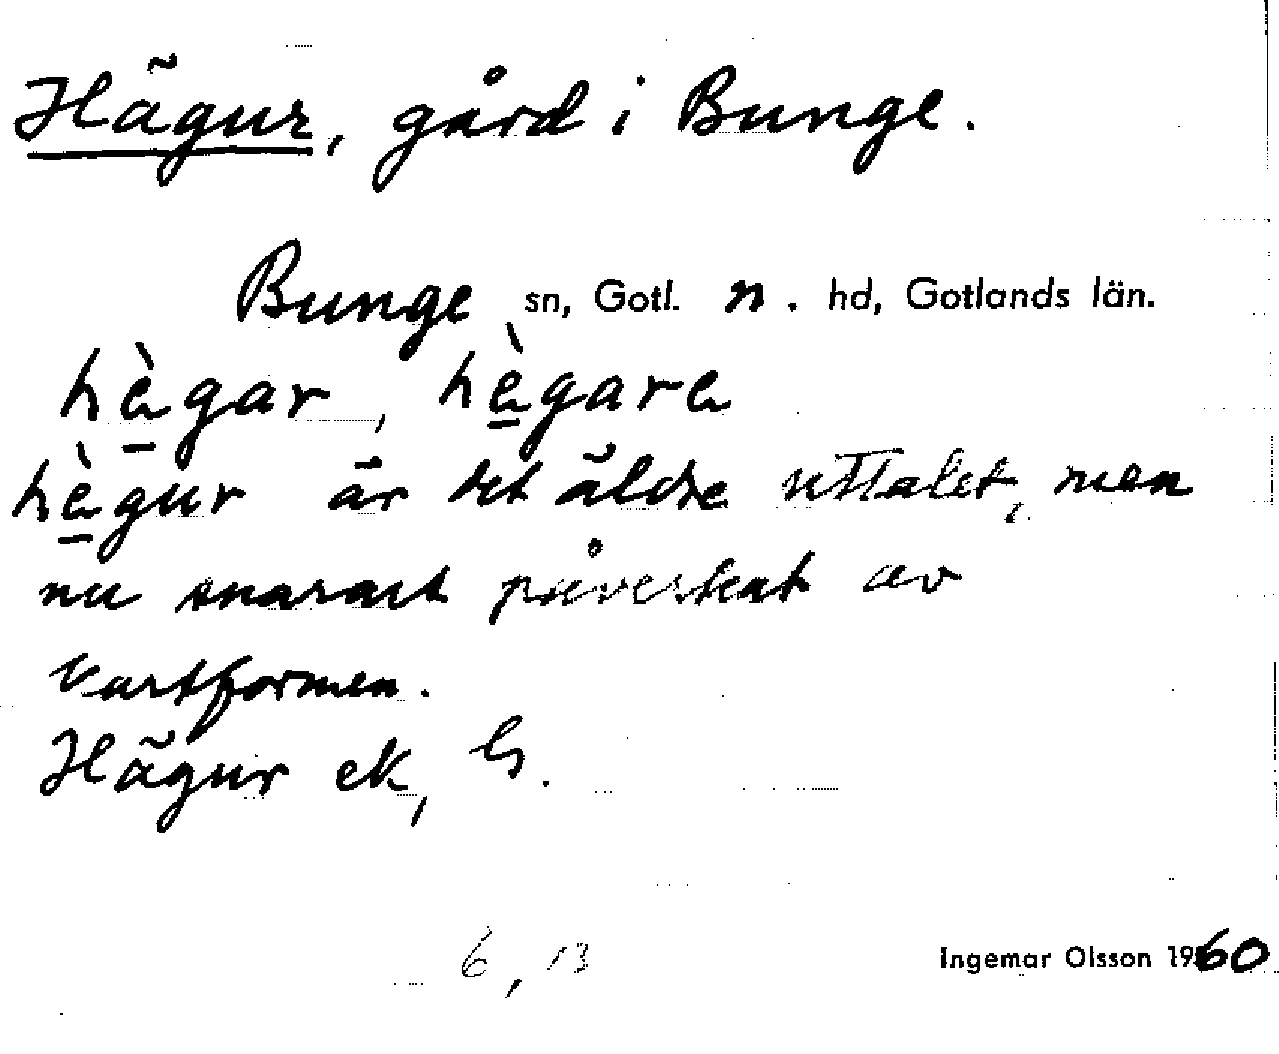 Hägur, gård i Bunge.
Bunge sn, Gotl. n. hd, Gotlands län.
hègar, hègara
hègur är det äldre uttalet, men
nu snarast påverkat av
kartformen.
Hägur ek, G.
6, 13
Ingemar Olsson 1960